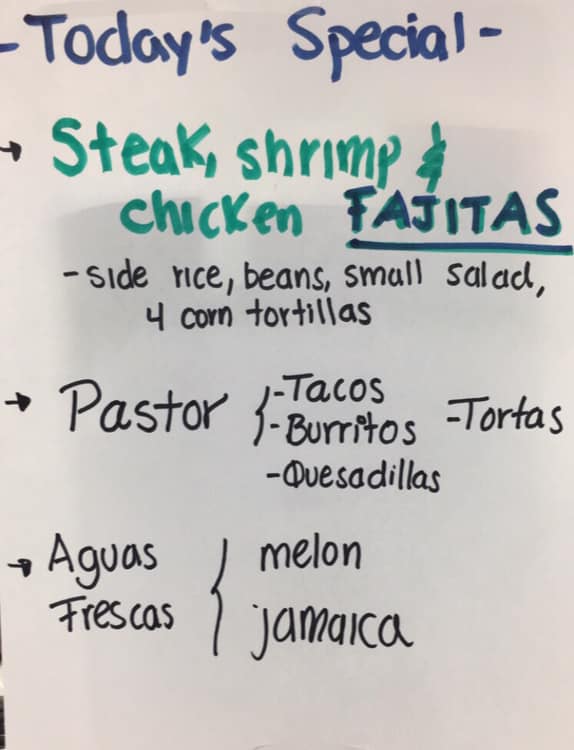 - Today's Special -
→ Steak, shrimp &
chicken FAJITAS
- side rice, beans, small salad,
4 corn tortillas
→ Pastor { - Tacos
- Burritos - Tortas
- Quesadillas
→ Aguas { melon
Frescas jamaica